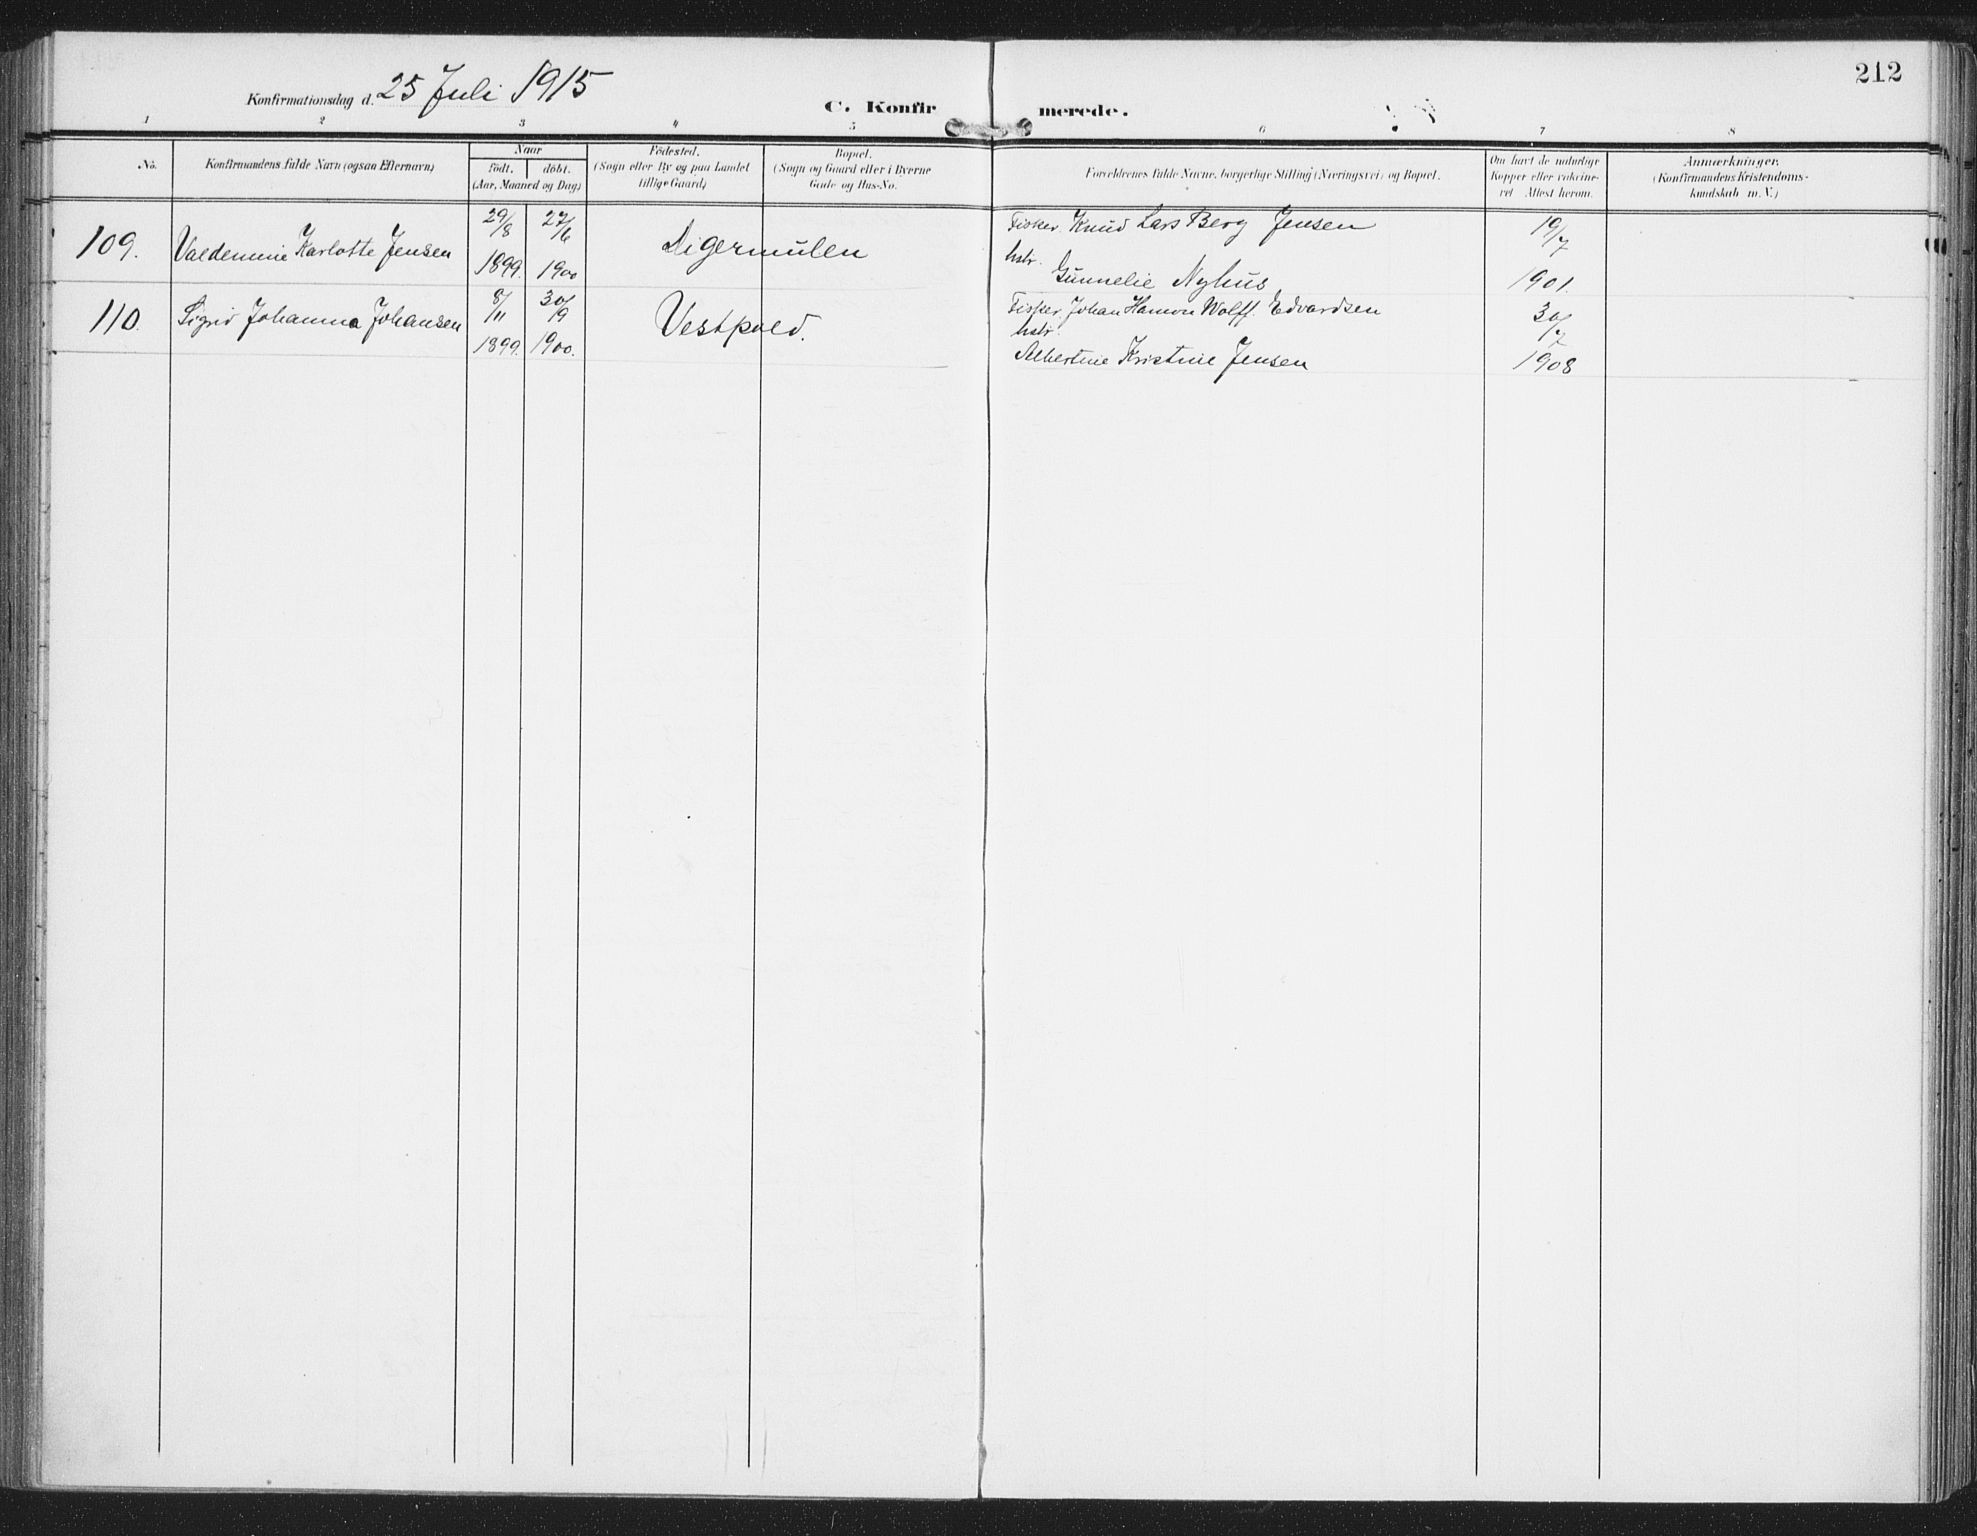 212
Konfirmationsdag d. 25 Juli 1915
C. Konfirmerede.
1 2 3 4 5 6 7 8
No.
Konfirmandens fulde Navn (ogsaa Efternavn)
Naar
födt. döbt.
(Aar, Maaned og Dag)
Födested.
(Sogn eller By og paa Landet
tillige Gaard)
Bopæl.
(Sogn og Gaard eller i Byerne
Gade og Hus-No.
Forældrenes fulde Navne, borgerlige Stilling (Næringsvei) og Bopæl.
Om havt de naturlige
Kopper eller vakcine-
ret Attest herom.
Anmærkninger.
(Konfirmandens Kristendoms-
kundskab m. V.)
109. Valdemine Karlotte Jensen 29/8 1899. 27/6 1900 Digermulen
Fisker Knud Lars Berg Jensen
hstr.
Gunnelie Nyhus
19/7 1901.
110. Sigrid Johanna Johansen 8/11 1899. 30/9 1900. Vestpold.
Fisker Johan Hamon Wolff Edvardsen
hstr.
Albertine Kristine Jensen
30/7 1908